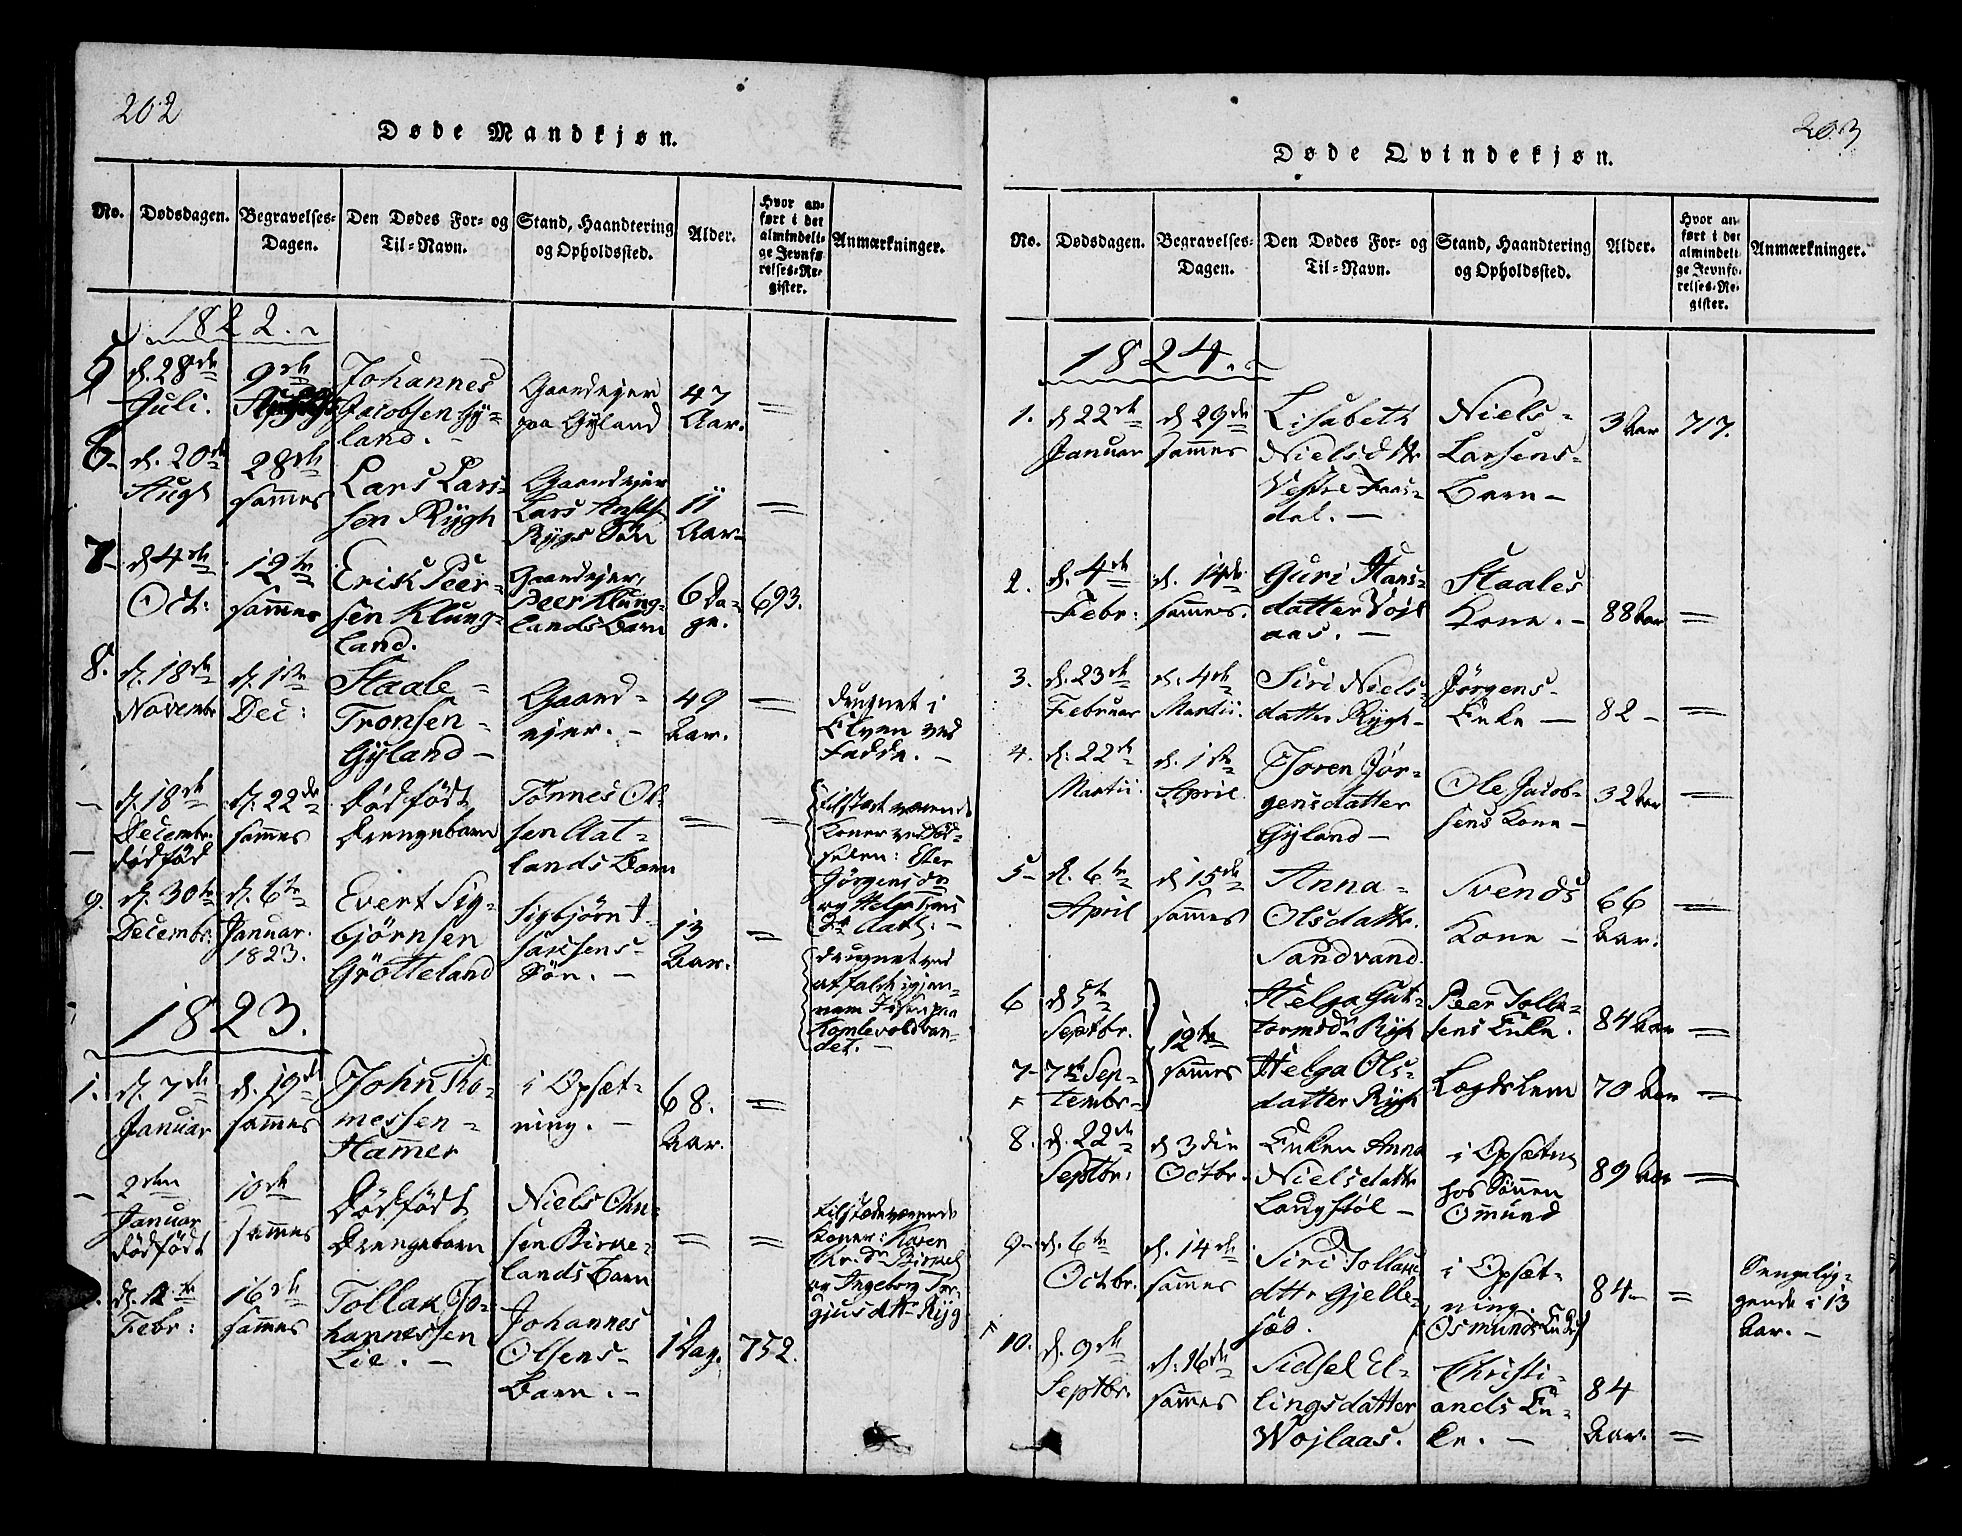 202
Døde Mandkjøn.
No.
Dødsdagen.
Begravelses-
Dagen.
Den Dødes For- og
Til-Navn.
Stand, Haandtering
og Opholdssted.
Alder.
Hvor an-
ført i det
almindeli-
ge Jevnfø-
relses-Re-
gister.
Anmærkninger.
1822.
5
d. 28de
Juli.
9de
Johannes
Jacobsen Gy-
land.
Gaardejer
paa Gyland
47
Aar.
=
6-
d. 20de
Augt
28de
sammes
Lars Lars-
sen Rygh
Gaardejer
Lars
Rygs Søn
11
Aar-
=
7-
d 4de
Oct:
12te
sammes
Erik Peer-
sen Klung-
land.
Gaardejer
Peer Klung-
lands Barn
6 Da-
ge.
693.
8.
d. 18de
Novembr
d. 1ste
Dec:
Staale-
Tronsen-
Gyland-
Gaard-
ejer.-
49
Aar.
=
druknet i
Elven ved
Fedde.-
-
d. 18de
Decembr.
dödföd
d. 22de
sammes
dödfödt
Drengebarn
Tönnes Ol-
sen Aat-
lands Barn
=
=
tilstædeværende
Koner ved Föd-
selen: Ester
Jörgensdr
og Helge
9.
d. 30te
Decembr.
d. 6te
Januar.
1823.
Evert Sig-
björnsen
Grötteland
Sigbjörn I-
saksens-
Sön.-
13
Aar.
=
druknet ved
at falde igjen-
nem Isen paa
Kamlevoldvan-
det.-
1823.
1.
d. 7de
Januar
d. 19de
sammes
John Tho-
messen-
Hammer
i Opsæt-
ning.-
68.
Aar.
=
-
2den
Januar
dödfödt
10de
sammes
Dödfödt
Drengebarn
Niels
sen Birke-
lands Barn
=
=
tilstædeværende
Koner: Karen
og Ingeborg Tor-
giusdttr Ryg
Febr:
16de
sammes
Tollak Jo-
hannessen
Lie.-
Johannes
Olsens-
Barn.-
1 Dag.
752.
203
Døde Qvindekjøn.
No.
Dødsdagen.
Begravelses-
Dagen.
Den Dødes For- og
Til-Navn.
Stand, Haandtering
og Opholdssted.
Alder.
Hvor an-
ført i det
almindeli-
ge Jevnfø-
relses-Re-
gister.
Anmærkninger.
1824.
1.
d 22de
Januar
d 29de
sammes
Lisabeth
Nielsdttr
Vestre Faas-
dal.-
Niels-
Larsens-
Barn-
3 Aar
717.
2.
d. 4de
Febr:
d. 14de
sammes.
Guri Hans-
datter Vojl
aas.-
Staales
Kone.-
88 Aar
=
3.
d. 23de
Februar
d. 4de
Martii.
Siri Niels-
datter Rygh-
Jörgens-
Enke-
82-
=
4.
d: 22de
Martii.
d. 1ste
April
Joren Jör-
gensdatter
Gyland-
Ole Jacob-
sens Kone-
32 Aar
=
5-
d. 6te
April
d 15de
sammes
Anna-
Olsdattr.
Sandvand
Svends
Kone-
66
Aar.
=
6
d 5te
Septbr.
12te
sammes
Helga Gut-
tormsdr Rygh
Peer Tolla-
sens Enke.
84 Aar
=
7-
7de Sep-
tembr-
Helga Ols-
datter Rygh
Lægdslem
70 Aar
=
8.
d. 22de
Septbr:
d 3die
Octbr.
Enken Anna
Nielsdattr
Langstöl-
i Opsætng
hos Sönnen
Omund
89 Aar
=
9-
d. 6te
Octbr.
d. 14de
sammes
Siri Tollags
dttr Gjelle-
sæd.
i Opsæt-
ning.
(Osmunds Enke)
84-
=
Sengelig-
gende i 13
Aar.-
10.
d. 9de
Septbr.
d. 16de
sammes
Sidsel El-
lingsdatter
Wojlaas.
Christi-
ands En-
ke.-
84
Aar.
=